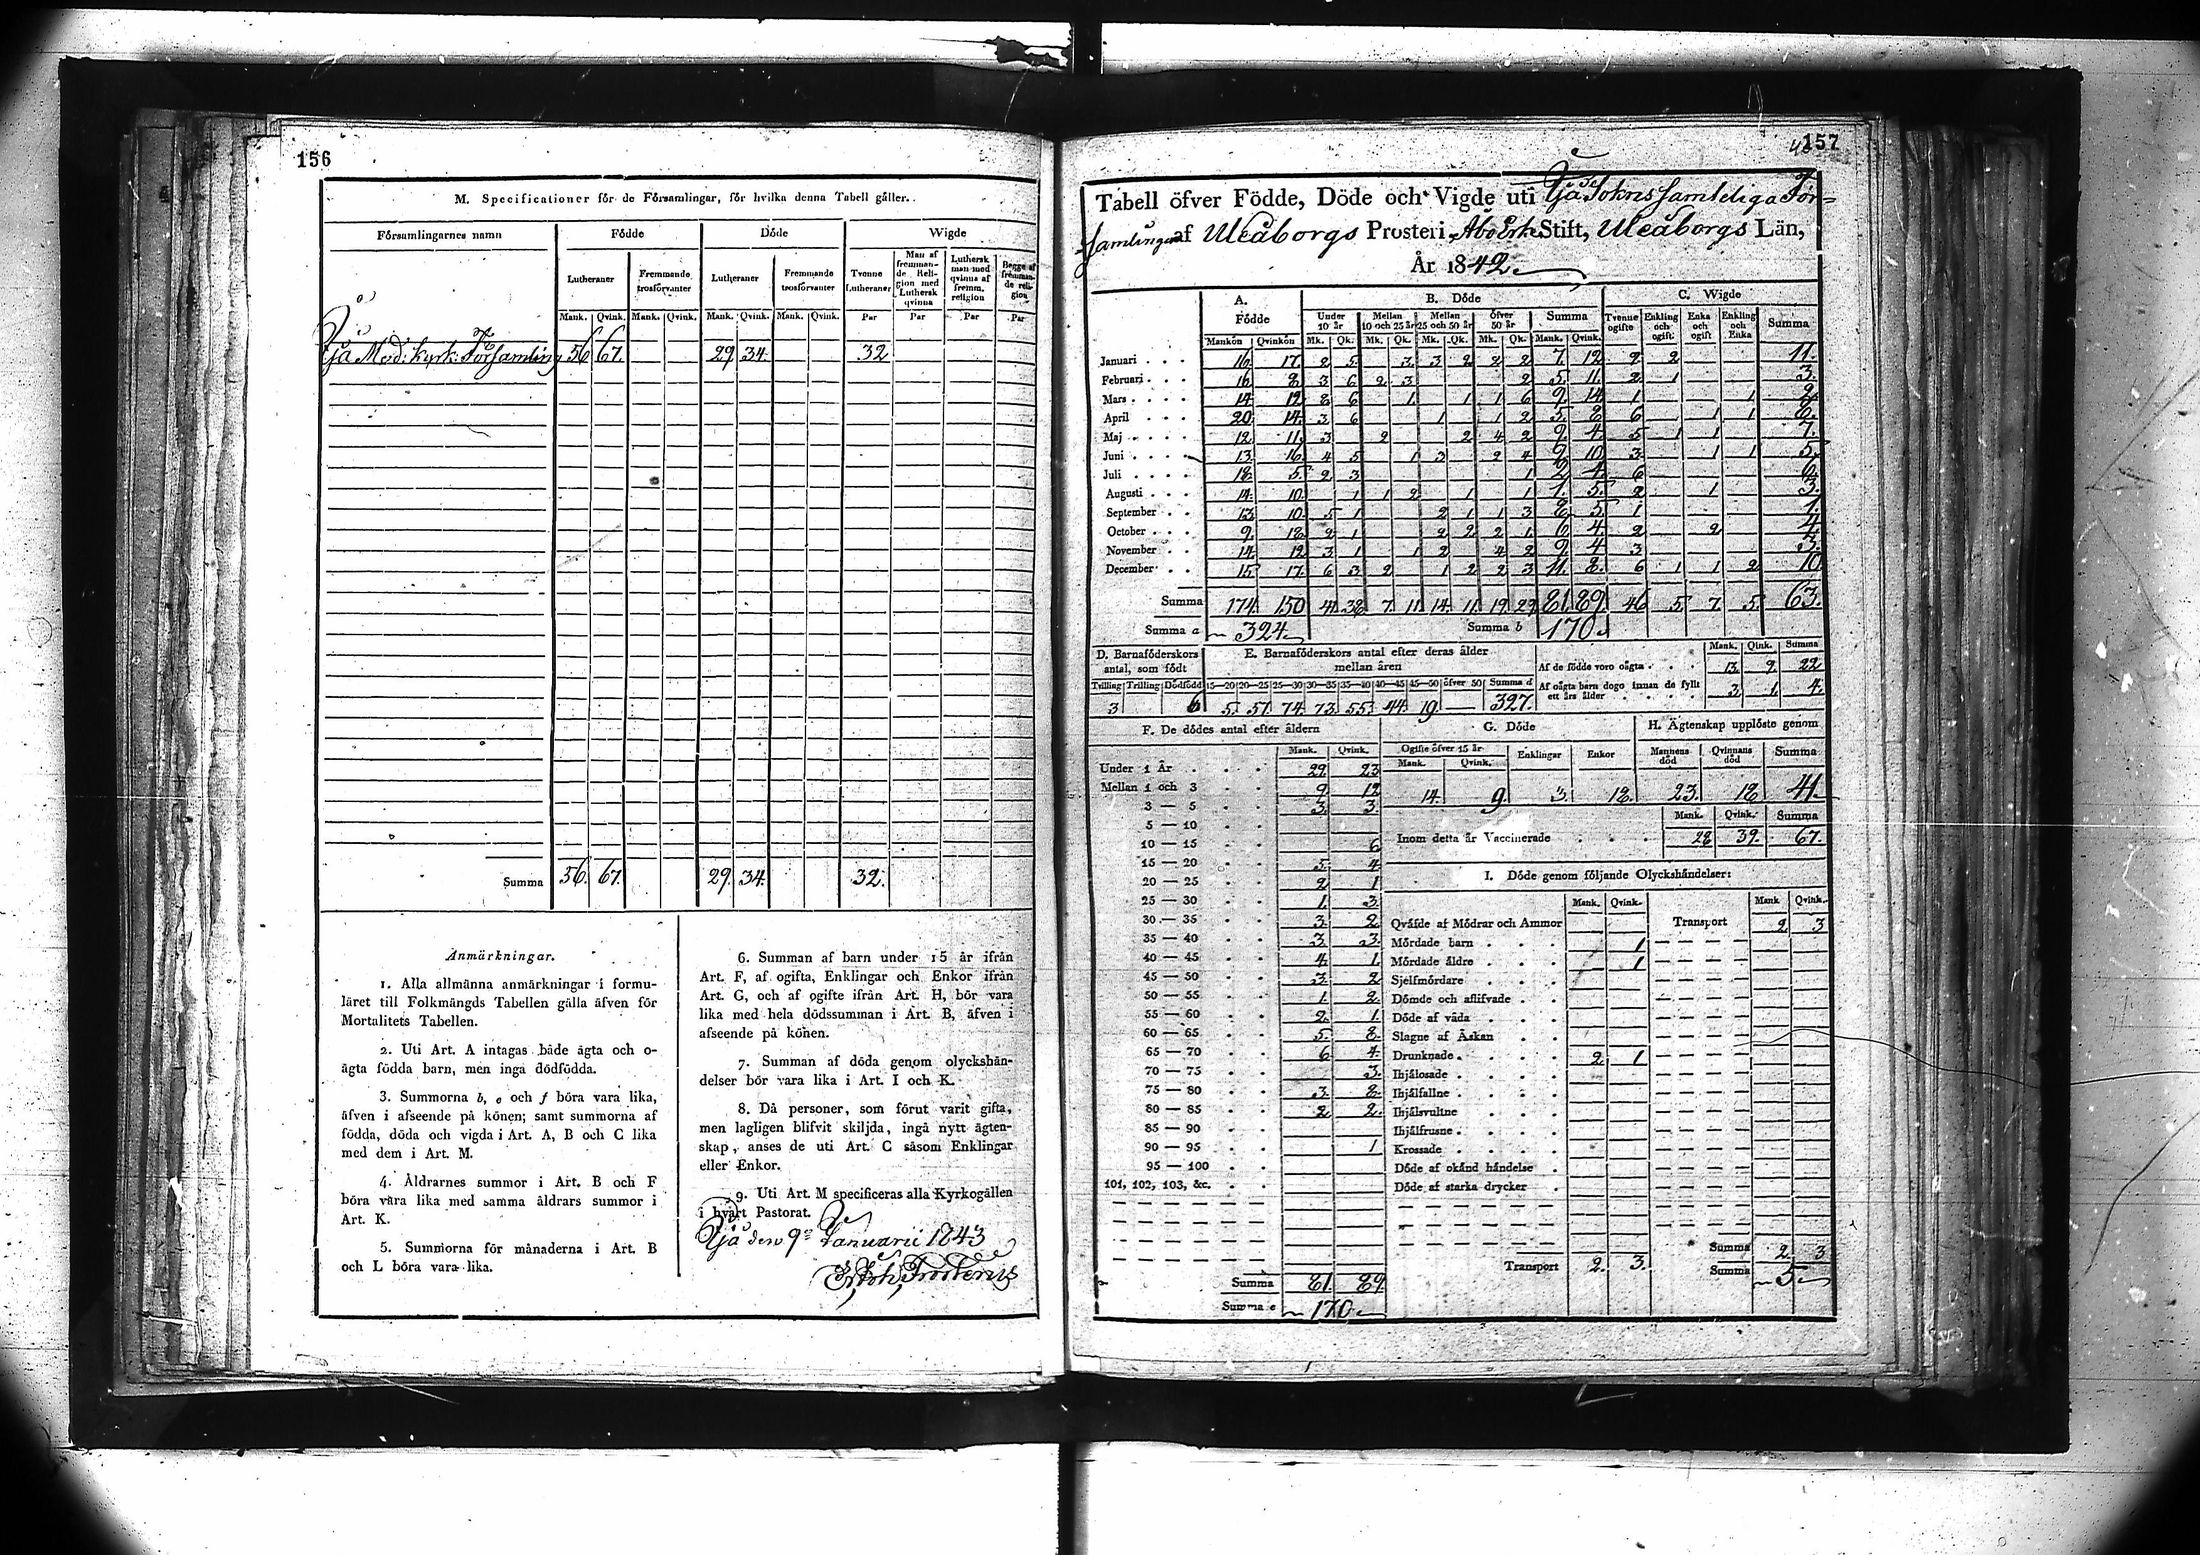 156
M. Specificationer för de Församlingar, för hvilka denna Tabell gäller.
Församlingarnes namn Födde Döde Wigde
Lutheraner Fremmande trosförvanter Lutheraner Fremmande trosförvanter Tvenne Lutheraner Man af fremmande Religion med Luthersk qvinna Luthersk man med qvinna af fremm. religion Begge af fremmande religion
Mank. Qvink. Mank. Qvink. Mank. Qvink. Mank. Qvink. Par Par Par Par
Ijå Mod: kyrk: Församling 56 67. 29. 34. 32
Summa 56. 67. 29. 34. 32.
Anmärkningar.
1. Alla allmänna anmärkningar i formu-
läret till Folkmängds Tabellen gälla äfven för
Mortalitets Tabellen.
2. Uti Art. A intagas både ägta och o-
ägta födda barn, men inga dödfödda.
3. Summorna b, e och f böra vara lika,
äfven i afseende på könen; samt summorna af
födda, döda och vigda i Art. A, B och C lika
med dem i Art. M.
4. Åldrarnes summor i Art. B och F
böra våra lika med samma åldrars summor i
Art. K.
5. Summorna för månaderna i Art. B
och L böra vara lika.
6. Summan af barn under 15 år ifrån
Art. F, af ogifta, Enklingar och Enkor ifrån
Art. G, och af ogifte ifrån Art. H, bör vara
lika med hela dödssumman i Art. B, äfven i
afseende på könen.
7. Summan af döda genom olyckshän-
delser bör vara lika i Art. I och K.
8. Då personer, som förut varit gifta,
men lagligen blifvit skiljda, ingå nytt ägten-
skap, anses de uti Art. C såsom Enklingar
eller Enkor.
9. Uti Art. M specificeras alla Kyrkogällen
i hvart Pastorat.
Ijå den 9de Januarii 1843
Frosterus
157
Tabell öfver Födde, Döde och Vigde uti Ijå Sokns samteliga För-
samlingar af Uleåborgs Prosteri, Åbo Erke Stift, Uleåborgs Län,
År 1842.
A. Födde B. Döde C. Wigde
Under 10 år Mellan 10 och 25 år Mellan 25 och 50 år Öfver 50 år Summa Tvenne ogifte Enkling och ogift Enka och ogift Enkling och Enka Summa
Mankön Qvinkön Mk. Qk. Mk. Qk. Mk. Qk. Mk. Qk. Mank. Qvink.
Januari 16. 17. 2 5. 3. 3 2 2 2 7. 12 9. 2 11.
Februari 16 8. 3 6 2 3. 2 5. 11. 2. 1 3.
Mars 14 12 8 6 1 1 1 6 9. 14 1 1 2
April 20. 14. 3 6 1 1 2 5. 8 6 1 1 8.
Maj 12. 11. 3 2 2 4 2 9. 4. 5 1 1 7.
Juni 13. 16 4 5 1 3 2 4 9. 10 3. 1 1 5.
Juli 18. 5. 2 3 1 2 4. 6 6.
Augusti 14. 10. 1 1 2 1 1 1. 5. 2 1 3.
September 13. 10. 5 1 2 1 1 3 8. 5. 1 1.
October 9. 18. 2 1 2 2 2 1. 6 4. 2 2 4.
November 14. 12 3 1 1 2 4 2 9. 4 3 3.
December 15 17. 6 3 2 1 2 2 3 11. 8. 6 1 1 2 10
Summa 174. 150 41. 38. 7. 11. 14. 11. 19. 29. 81. 89. 46 5. 7. 5. 63.
Summa a 324. Summa b 170.
D. Barnaföderskors antal, som födt E. Barnaföderskors antal efter deras ålder mellan åren Mank. Qink. Summa
Af de födde voro oägta 13. 9. 22
Tvilling Trilling Dödfödd 15—20 20—25 25—30 30—35 35—40 40—45 45—50 öfver 50 Summa d Af oägta barn dogo innan de fyllt ett års ålder 3. 1. 4.
3 6 5. 51. 74. 73. 55. 44. 19 — 327.
F. De dödes antal efter åldern G. Döde H. Ägtenskap upplöste genom
Mank. Qvink. Ogifte öfver 15 år Mank. Qvink. Enklingar Enkor Mannens död Qvinnans död Summa
Under 1 År 29. 23
Mellan 1 och 3 9 12 14. 9. 3. 18. 23. 18 41.
3 — 5 3. 3
Mank. Qvink. Summa
5 — 10
10 — 15 6 Inom detta år Vaccinerade 28 39. 67.
15 — 20 5. 4
20 — 25 2 1 I. Döde genom följande Olyckshändelser:
25 — 30 1. 3. Mank. Qvink. Mank. Qvink.
30 — 35 3. 2 Qväfde af Mödrar och Ammor Transport 2 3
35 — 40 3. 3. Mördade barn 1
40 — 45 4. 1. Mördade äldre 1
45 — 50 3. 2 Sjelfmördare
50 — 55 1. 2. Dömde och aflifvade
55 — 60 2. 1. Döde af våda
60 — 65 5. 8. Slagne af Åskan
65 — 70 6 4. Drunknade 2 1
70 — 75 3. Ihjälosade
75 — 80 3. 8. Ihjälfallne
80 — 85 2 2. Ihjälsvultne
85 — 90 Ihjälfrusne
90 — 95 1 Krossade
95 — 100 Döde af okänd händelse
101, 102, 103, &c. Döde af starka drycker
Summa 2. 3
Transport 2. 3. Summa 5
Summa 81. 89.
Summa e 170